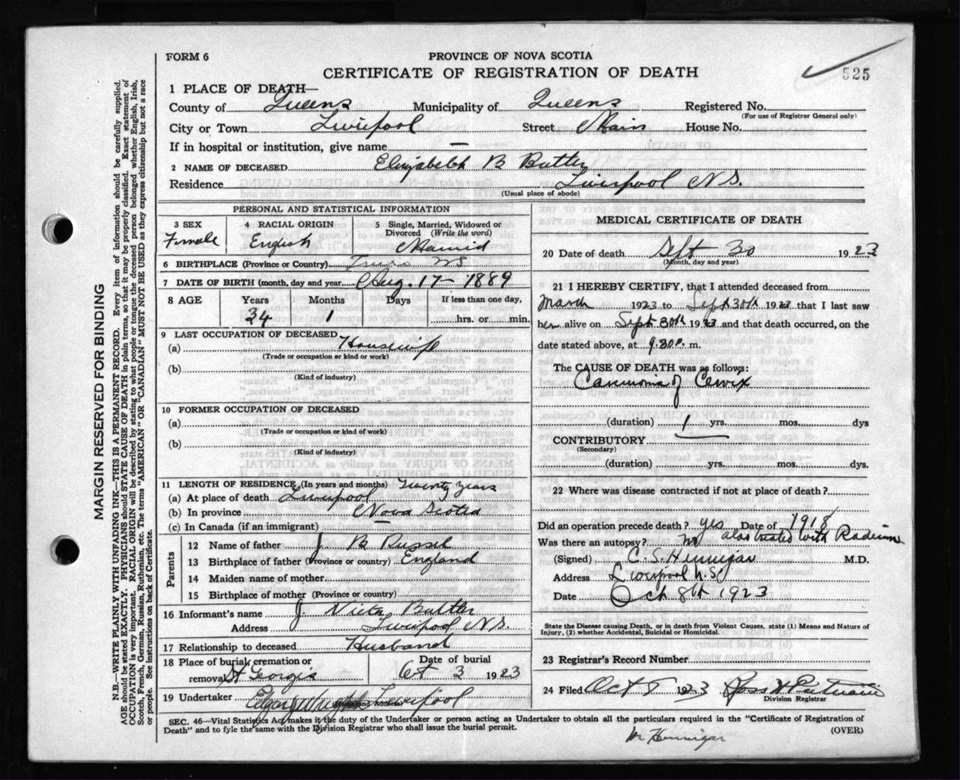 FORM 6
PROVINCE OF NOVA SCOTIA
CERTIFICATE OF REGISTRATION OF DEATH
525
1 PLACE OF DEATH—
County of Queens Municipality of Queens Registered No.
(For use of Registrar General only)
City or Town Liverpool Street Main House No.
If in hospital or institution, give name —
2 NAME OF DECEASED Elizabeth B Butler
Residence Liverpool N.S.
(Usual place of abode)
PERSONAL AND STATISTICAL INFORMATION
3 SEX Female
4 RACIAL ORIGIN English
5 Single, Married, Widowed or Divorced (Write the word) Married
6 BIRTHPLACE (Province or Country) Truro NS
7 DATE OF BIRTH (month, day and year) Aug. 17 - 1889
8 AGE Years 34 Months 1 Days If less than one day, hrs. or min.
9 LAST OCCUPATION OF DECEASED
(a) Housewife
(Trade or occupation or kind or work)
(b)
(Kind of industry)
10 FORMER OCCUPATION OF DECEASED
(a)
(Trade or occupation or kind of work)
(b)
(Kind of industry)
11 LENGTH OF RESIDENCE (In years and months) Twenty years
(a) At place of death Liverpool
(b) In province Nova Scotia
(c) In Canada (if an immigrant) —
Parents
12 Name of father J B Russel
13 Birthplace of father (Province or country) England
14 Maiden name of mother
15 Birthplace of mother (Province or country)
16 Informant's name J Butler
Address Liverpool N.S.
17 Relationship to deceased Husband
18 Place of burial, cremation or removal St Georges Date of burial Oct 3 1923
19 Undertaker Liverpool
MEDICAL CERTIFICATE OF DEATH
20 Date of death Sept 30 1923
(Month, day and year)
21 I HEREBY CERTIFY, that I attended deceased from
March 1923 to Sept 30th 1923 that I last saw
her alive on Sept 30th 1923 and that death occurred, on
date stated above, at 9.30 P. m.
The CAUSE OF DEATH was as follows:
Carcinoma of Cervix
(duration) 1 yrs. mos. dys
CONTRIBUTORY
(Secondary)
(duration) yrs. mos. dys.
22 Where was disease contracted if not at place of death?
Did an operation precede death? yes Date of 1918
Was there an autopsy? No also treated with Radium
(Signed) C. S. Hennigar M.D.
Address Liverpool N.S.
Date Oct 8th 1923
State the Disease causing Death, or in death from Violent Causes, state (1) Means and Nature of
Injury, (2) whether Accidental, Suicidal or Homicidal.
23 Registrar's Record Number
24 Filed Oct 8 1923
Division Registrar
SEC. 46—Vital Statistics Act makes it the duty of the Undertaker or person acting as Undertaker to obtain all the particulars required in the "Certificate of Registration of
Death" and to fyle the same with the Division Registrar who shall issue the burial permit.
(OVER)
MARGIN RESERVED FOR BINDING
N.B.—WRITE PLAINLY WITH UNFADING INK—THIS IS A PERMANENT RECORD. Every item of information should be carefully supplied.
AGE should be stated EXACTLY. PHYSICIANS should STATE CAUSE OF DEATH in plain terms, so that it may be properly classified. Exact statement of
OCCUPATION is very important. RACIAL ORIGIN will be described by stating to what people or tongue the deceased person belonged whether English, Irish,
Scotch, French, German, Russian, Ruthenian, etc. The terms "AMERICAN" OR "CANADIAN" MUST NOT BE USED as they express citizenship but not a race
or people. See instructions on back of Certificate.